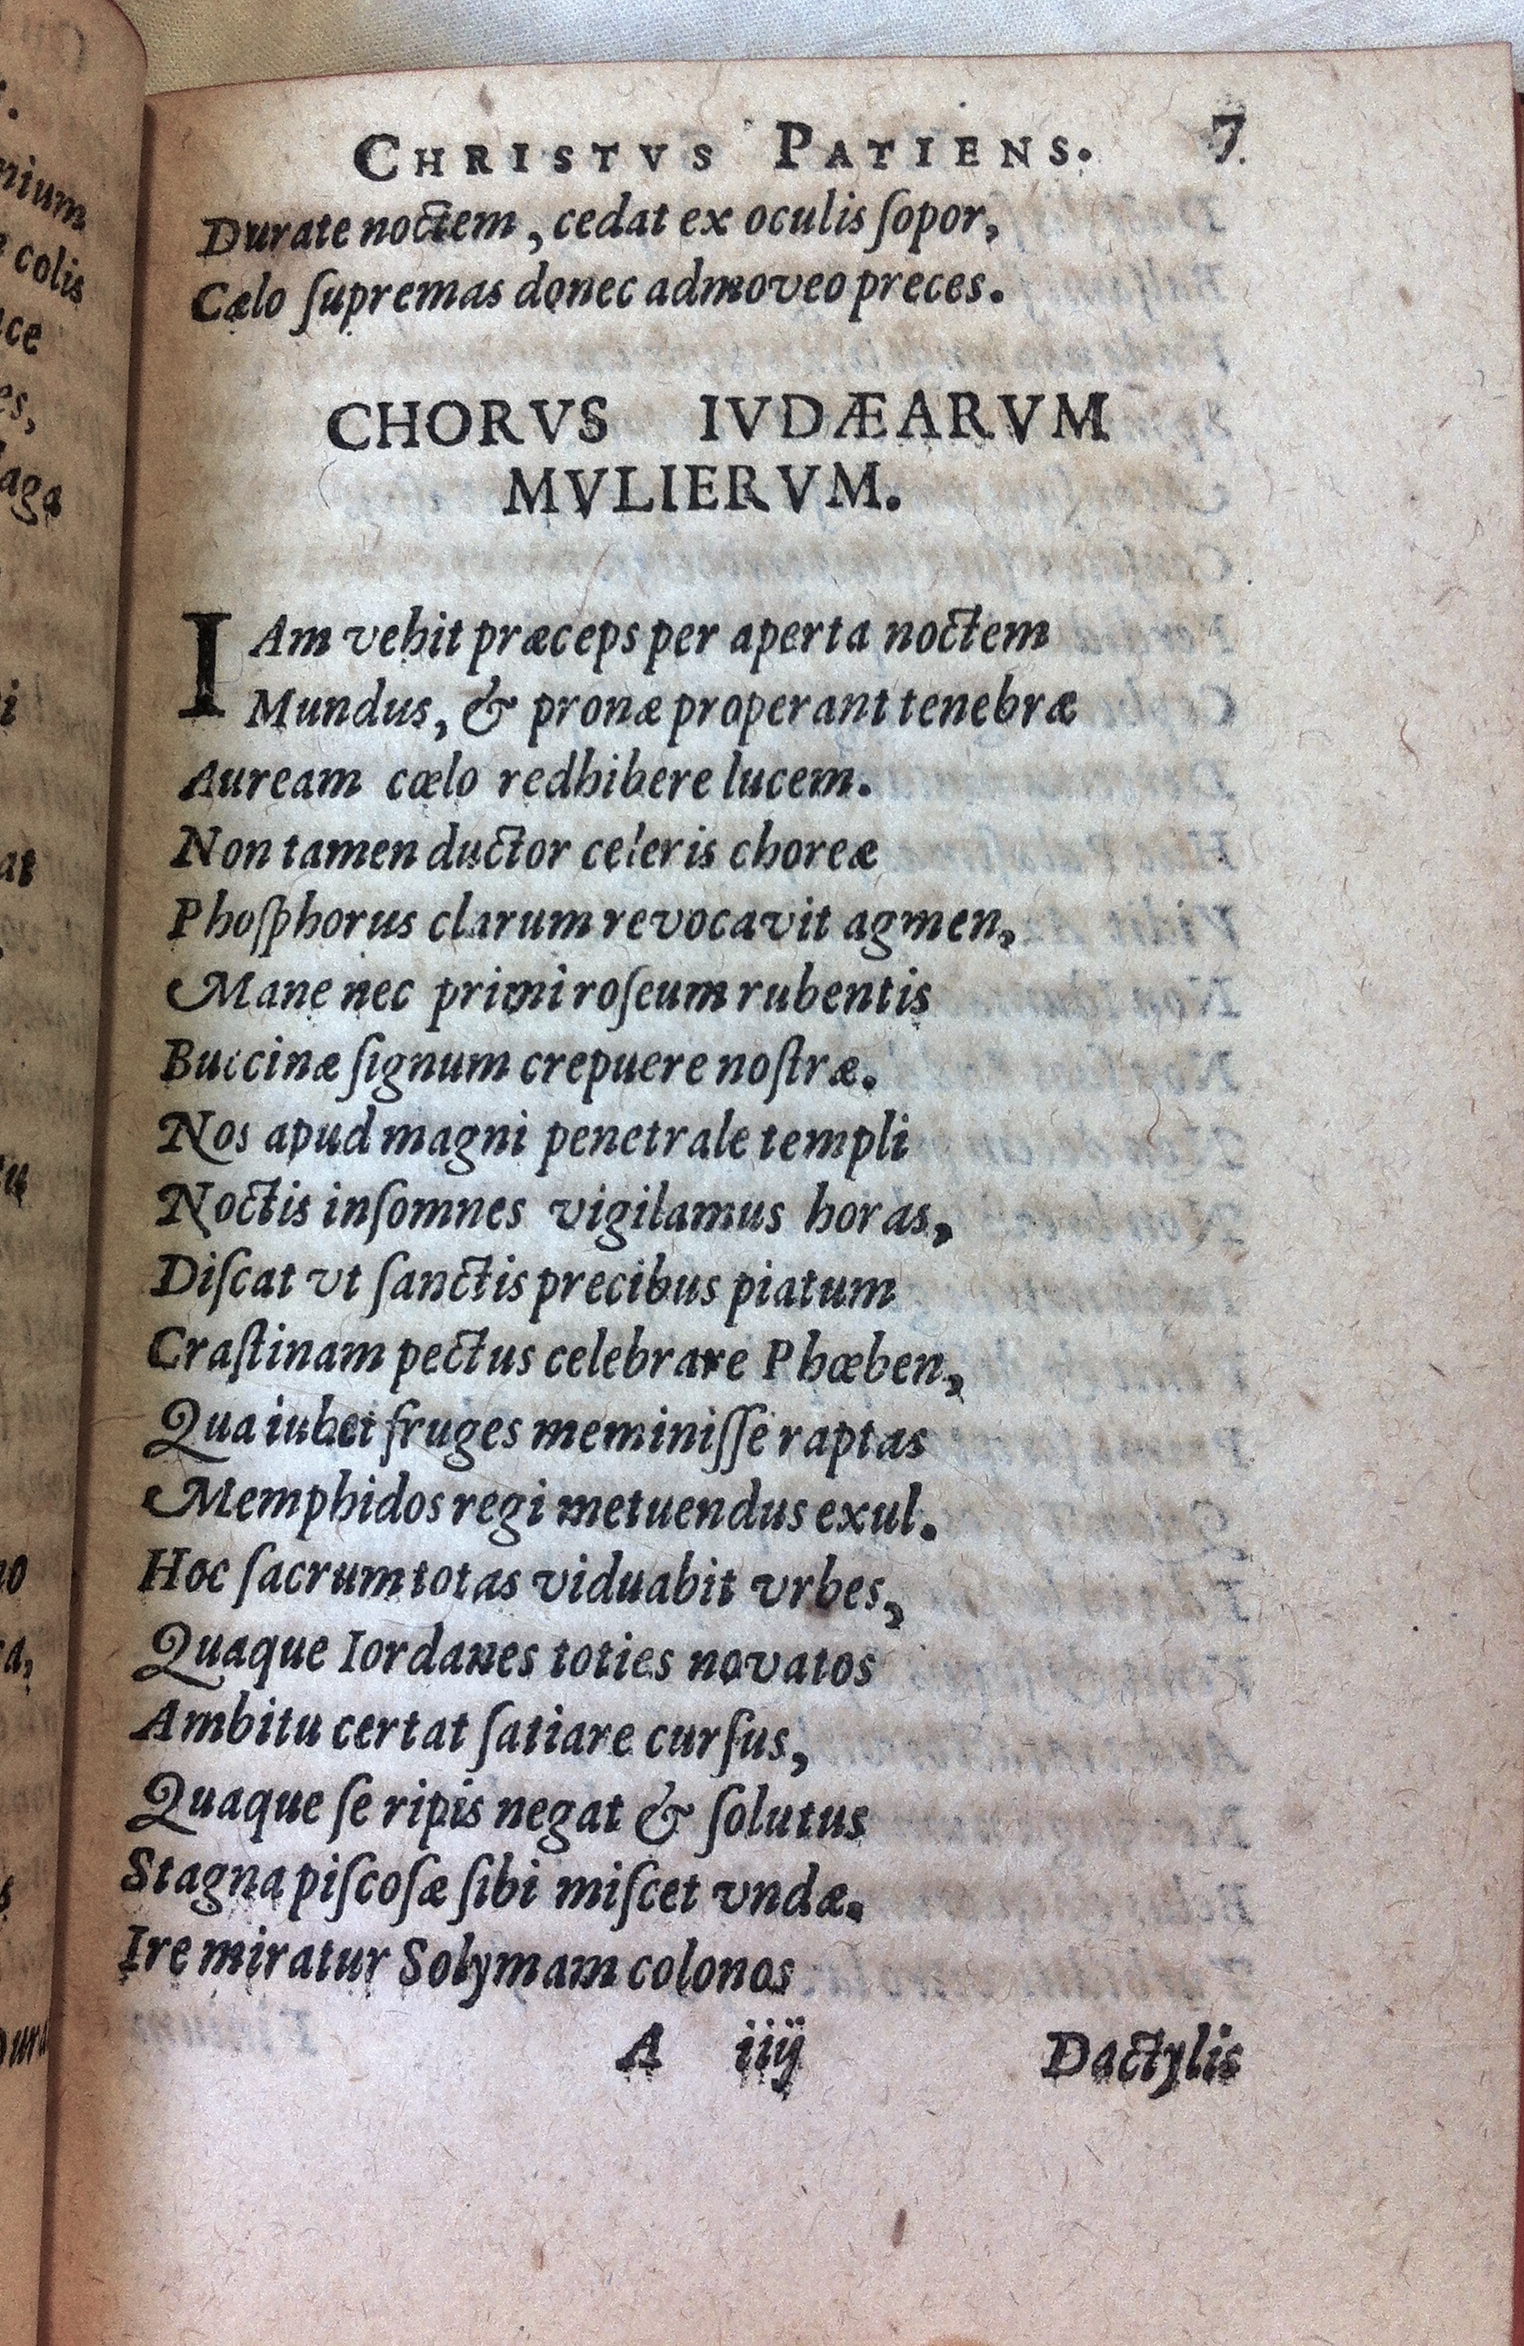 CHRISTVS PATIENS. 7.
Durate noctem, cedat ex oculis ſopor,
Cælo ſupremas donec admoveo preces.
CHORVS IVDÆARVM
MVLIERVM.
IAm vehit præceps per aperta noctem
Mundus, & pronæ properant tenebræ
Auream cælo redhibere lucem.
Non tamen ductor celeris choreæ
Phoſphorus clarum revocavit agmen,
Mane nec primi roſeum rubentis
Buccinæ ſignum crepuere noſtræ.
Nos apud magni penetrale templi
Noctis inſomnes vigilamus horas,
Diſcat vt ſanctis precibus piatum
Craſtinam pectus celebrare Phœben,
Qua iubet fruges meminiſſe raptas
Memphidos regi metuendus exul.
Hoc ſacrum totas viduabit vrbes,
Quaque Iordanes toties novatos
Ambitu certat ſatiare curſus,
Quaque ſe ripis negat & ſolutus
Stagna piſcoſæ ſibi miſcet vndæ.
Ire miratur Solymam colonos
A iiij Dactylis